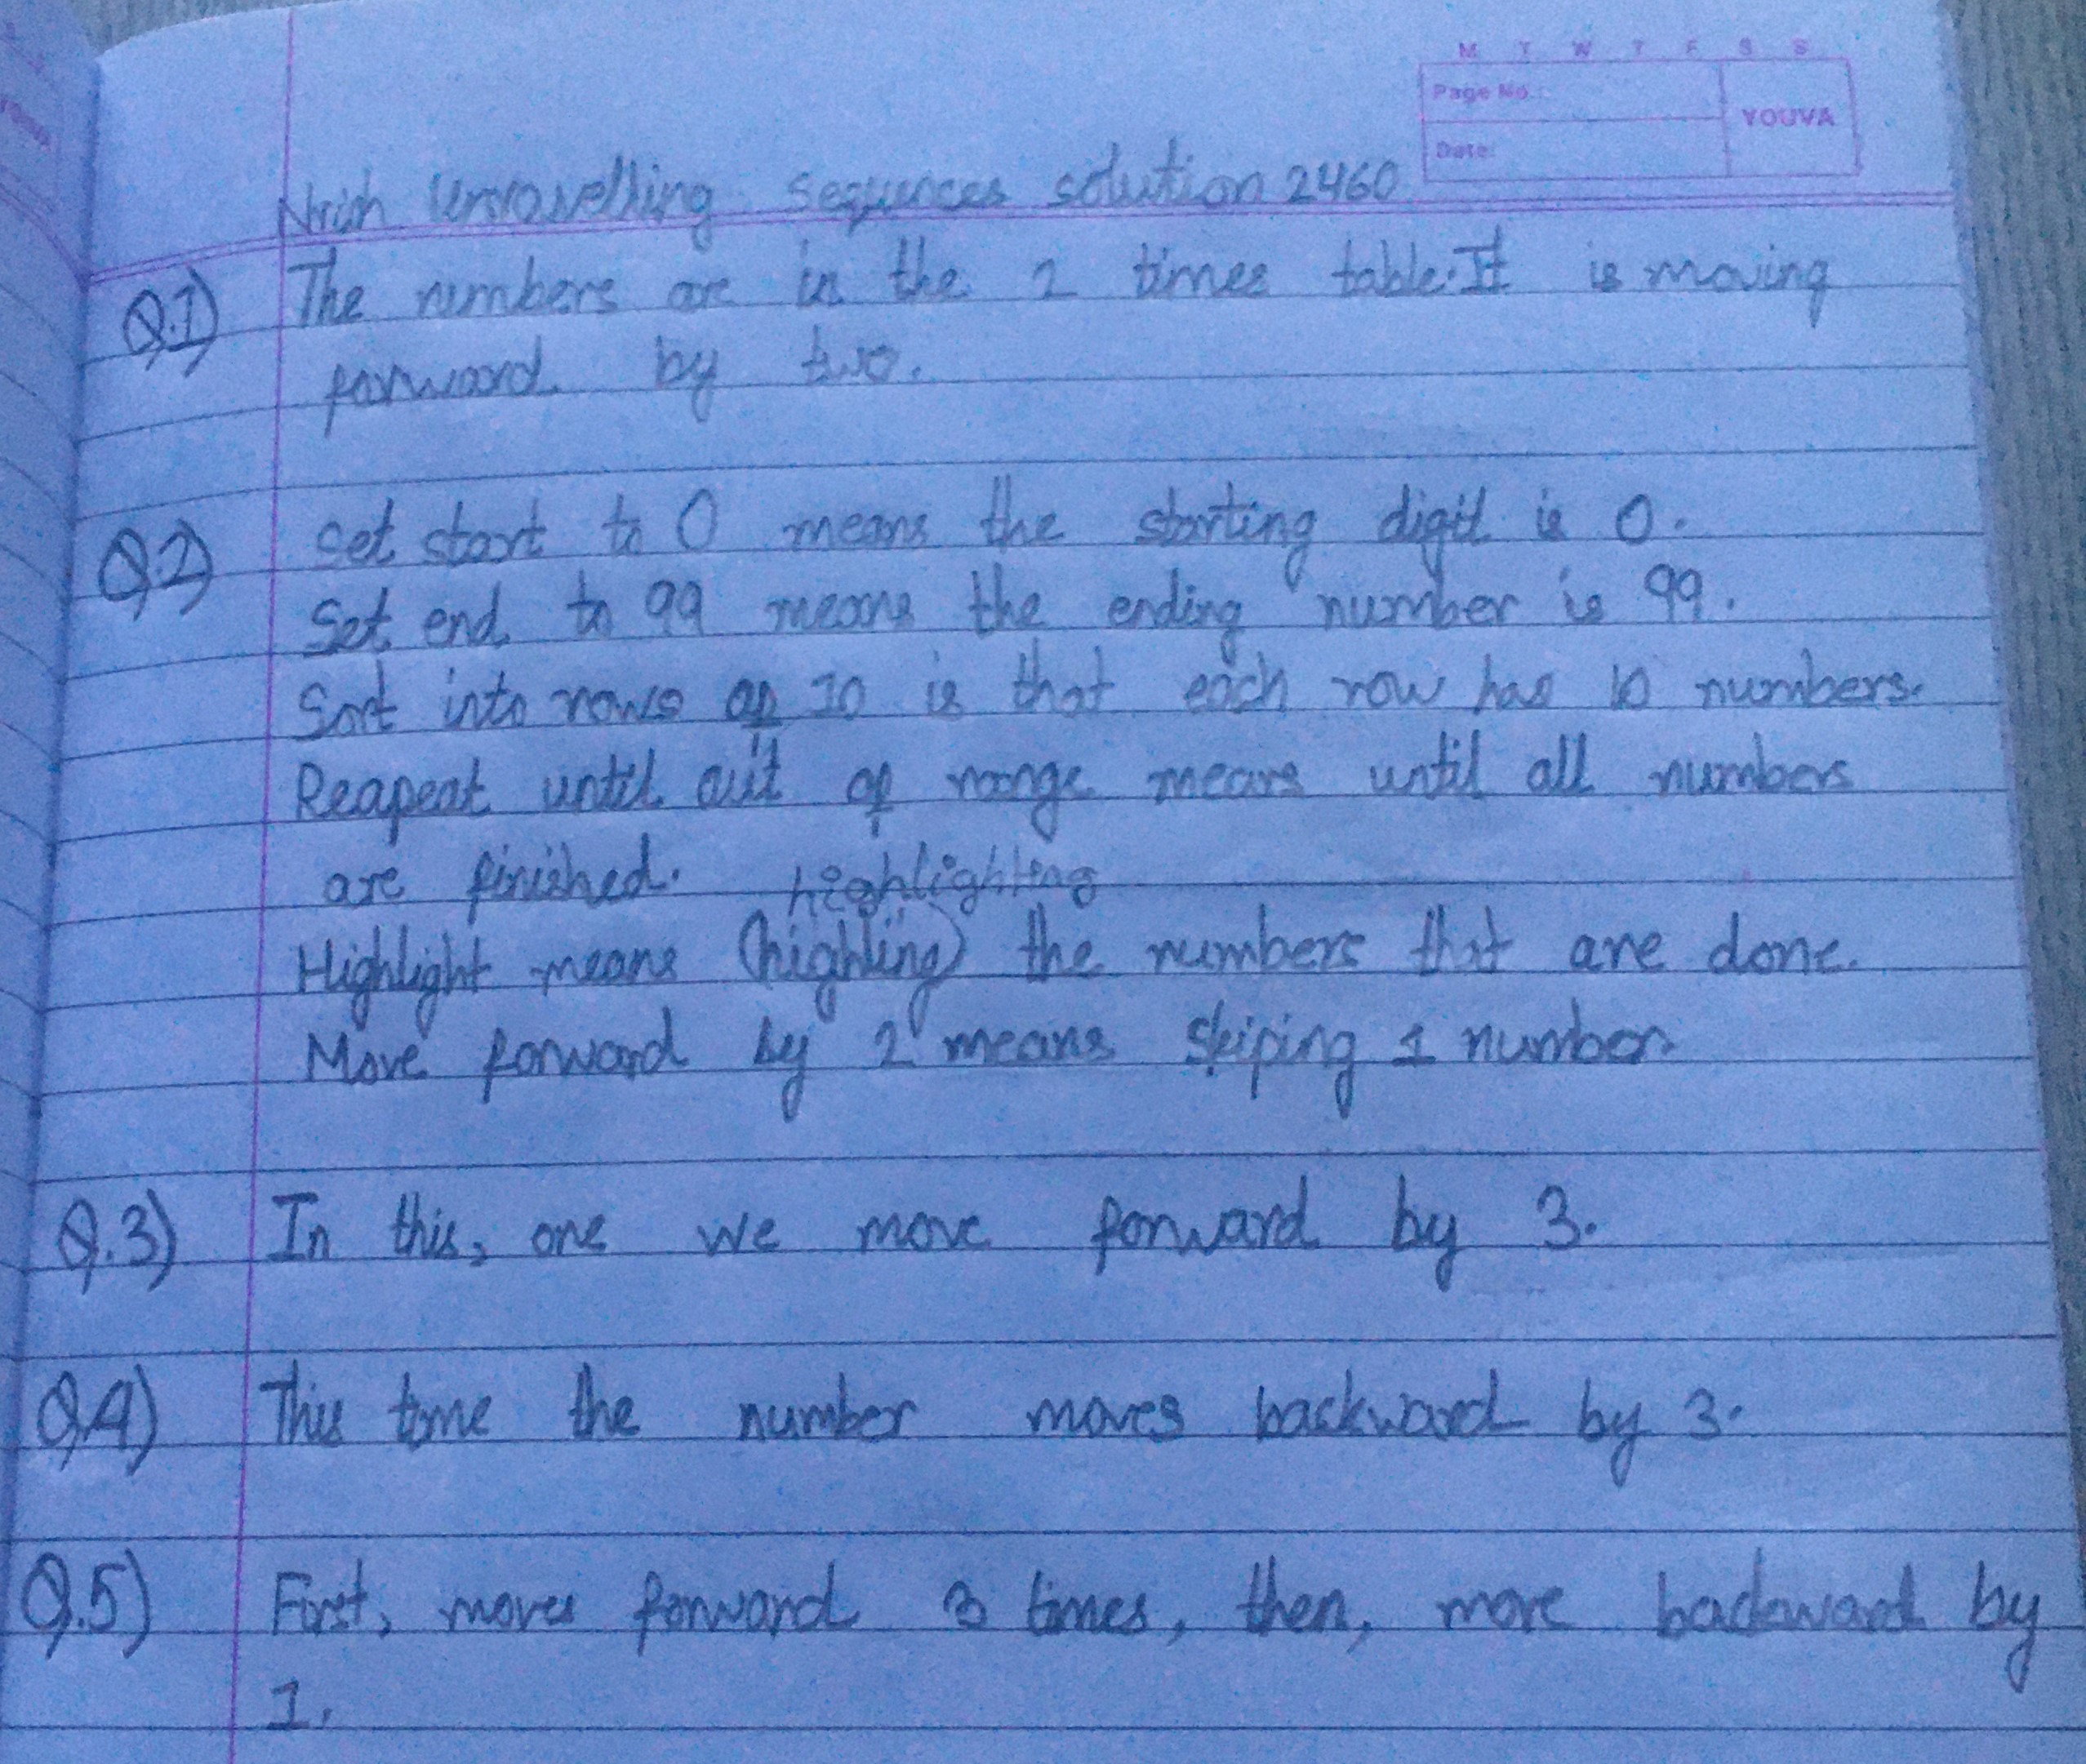 M T W T F S S
Page No.:
YOUVA
Date:
Nrich Unravelling Sequences solution 2460
Q.1) The numbers are in the 2 times table. It is moving
forward by two.
Q.2) Set start to 0 means the starting digit is 0.
Set end to 99 means the ending number is 99.
Sort into rows of 10 is that each row has 10 numbers.
Reapeat until out of range means until all numbers
are finished. highlighting
Highlight means (highling) the numbers that are done.
Move forward by 2 means skiping 1 number
Q.3) In this, one we move forward by 3.
Q.4) This time the number moves backward by 3.
Q.5) First, moves forward 3 times, then, move backward by
1.